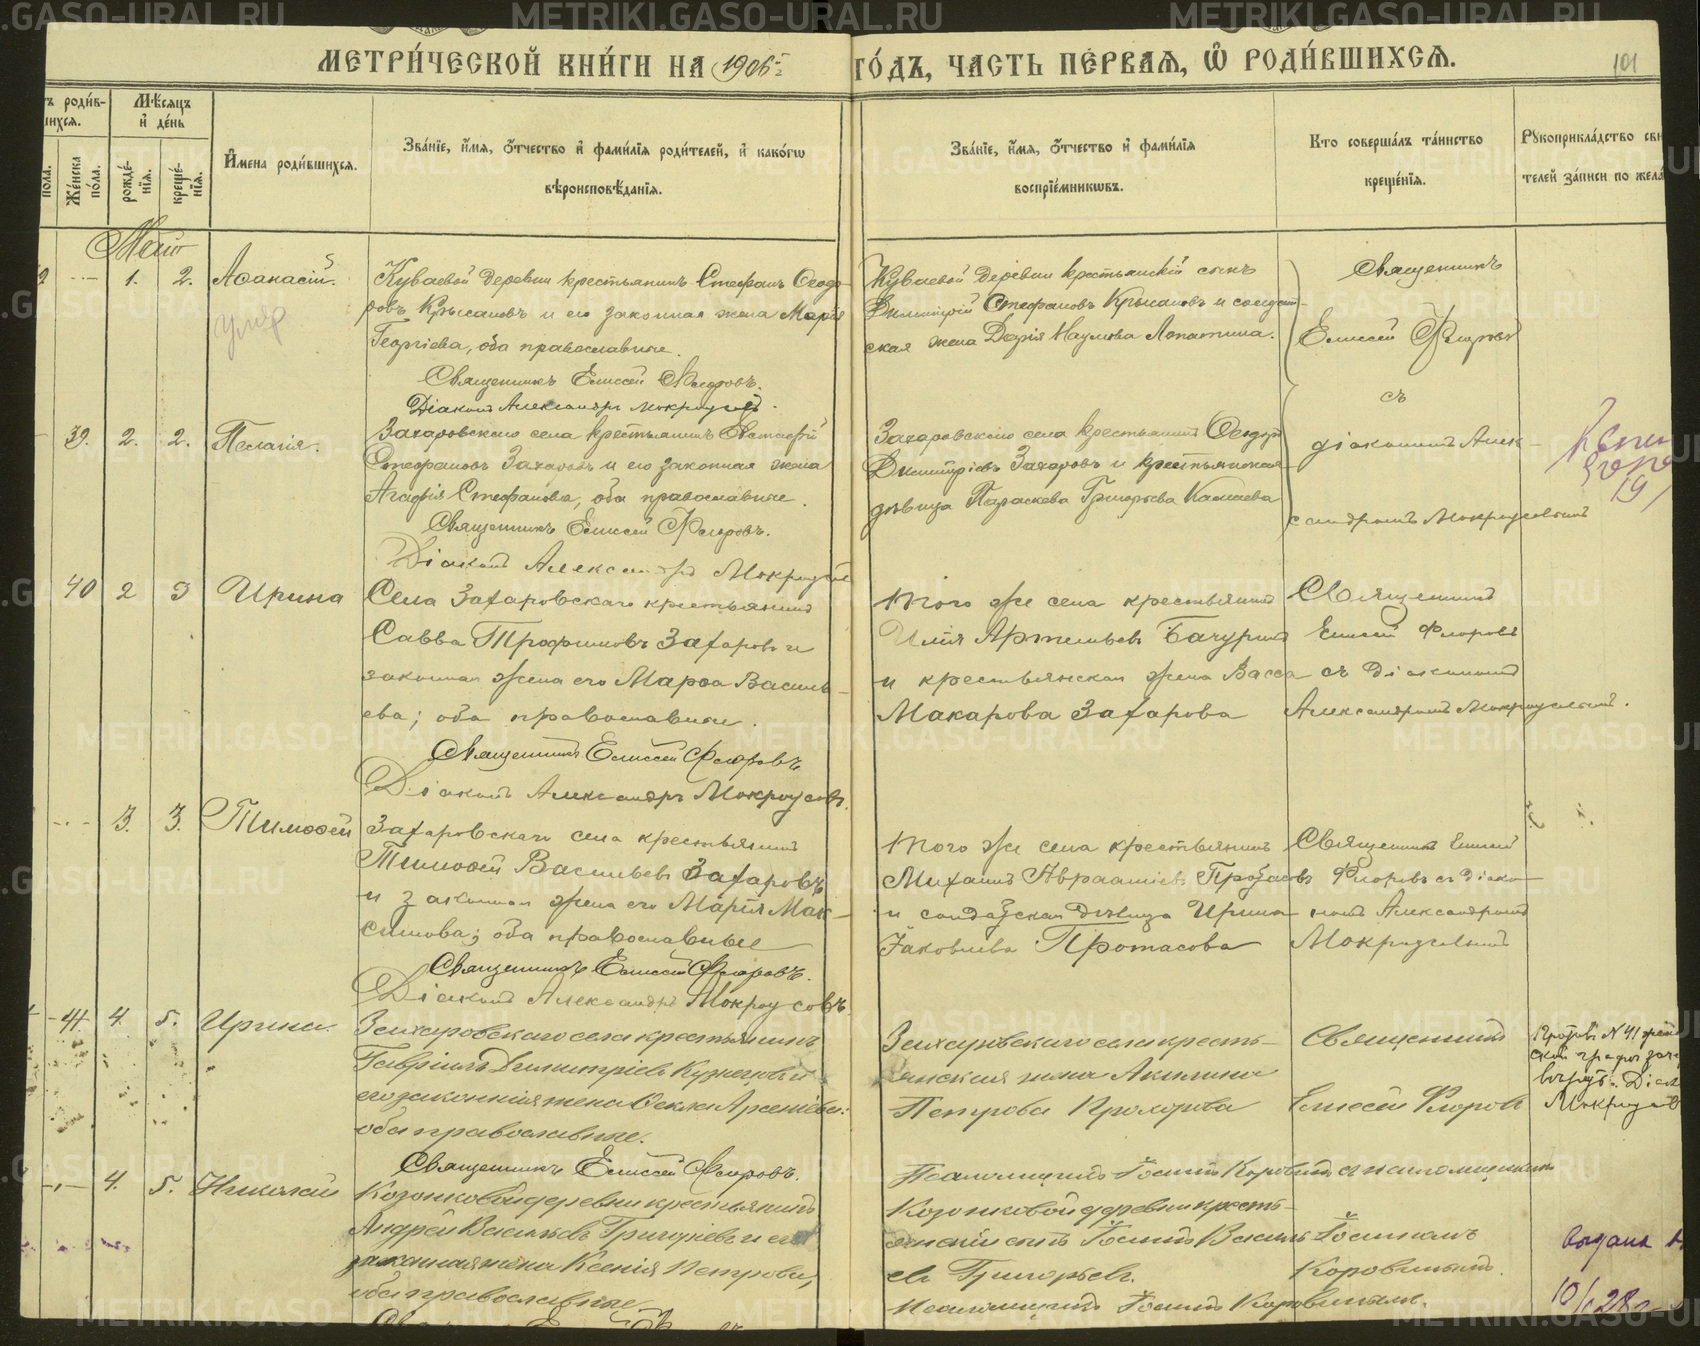 МЕТРИ́ЧЕСКОЙ КНИ́ГИ НА 1906й ГО́ДЪ, ЧАСТЬ ПЕ́РВАЯ, Ѡ҆ РОДИ́ВШИХСЯ.
101
Мѣсяцъ и҆ де́нь
Же́нска по́ла.
рожде́-нїя.
креще́-нїя.
И҆мена роди́вшихся.
Зва́нїе, и҆́мя, ѻ҆́тчество и҆ фами́лїя роди́телей, и҆ како́гѡ
вѣроисповѣ́данїя.
Зва́нїе, и҆́мя, ѻ҆́тчество и҆ фами́лїя
воспрїе́мникѡвъ.
Кто соверша́лъ та́инство
креще́нїя.
Рꙋкоприкла́дство сви
телей за́писи по жела́
Май
1. 2. Аѳанасій.
умер
Куваевой деревни крестьянинъ Стефанъ Ѳеодо-
ровъ Крысановъ и его законная жена Марія
Георгіева, оба православные.
Священникъ Елисей Флоровъ.
Діаконъ Александръ Мокроусовъ.
Куваевой деревни крестьянскій сынъ
Димитрій Стефановъ Крысановъ и солдат-
ская жена Дарія Наумова Лопатина.
Священникъ
Елисей Флоровъ
съ
39. 2. 2. Пелагія.
Захаровскаго села крестьянинъ Евстафій
Стефановъ Захаровъ и его законная жена
Агафія Стефанова, оба православные.
Священникъ Елисей Флоровъ.
Діаконъ Александръ Мокроусовъ
Захаровскаго села крестьянинъ Ѳеодоръ
Димитріевъ Захаровъ и крестьянская
дѣвица Параскева Григорьева Камаева
діакономъ Алек-
сандромъ Мокроусовымъ
40 2 3 Ирина
Села Захаровскаго крестьянинъ
Савва Трофимовъ Захаровъ и
законная жена его Марѳа Василь-
ева; оба православные.
Священникъ Елисей Флоровъ
Діаконъ Александръ Мокроусовъ.
Того же села крестьянинъ
Илія Артемьевъ Бачуринъ
и крестьянская жена Васса
Макарова Захарова
Священникъ
Елисей Флоровъ
съ Діакономъ
Александромъ Мокроусовымъ.
3. 3. Тимоѳей
Захаровскаго села крестьянинъ
Тимоѳей Васильевъ Захаровъ
и законная жена его Марія Мак-
симова; оба православные
Священникъ Елисей Флоровъ.
Діаконъ Александръ Мокроусовъ.
Того же села крестьянинъ
Михаилъ Аврааміевъ Протасовъ
и солдатская дѣвица Ирина
Іаковлева Протасова
Священникъ Елисей
Флоровъ съ діако-
номъ Александромъ
Мокроусовымъ
41 4. 5. Ирина.
Захаровскаго села крестьянинъ
Гавріилъ Димитріевъ Кузнецовъ и
его законная жена Ѳекла Арсеніева:
оба православные.
Священникъ Елисей Флоровъ.
Захаровскаго села кресть-
янская жена Акилина
Петрова Прохорова
Священникъ
Елисей Флоровъ
Псаломщикъ Іоаннъ Коровинъ съ псаломщикомъ
Противъ № 41 жен
ской графы
Мокроусов
4. 5. Николай
Козонковой деревни крестьянинъ
Андрей Васильевъ Григорьевъ и его
законная жена Ксенія Петрова,
оба православные
Козонковой деревни кресть-
янскій сынъ Іоаннъ Василь-
евъ Григорьевъ.
Псаломщикъ Іоаннъ Коровинъ
Іоанномъ
Коровинымъ.
выдана
10/ 28
METRIKI.GASO-URAL.RU